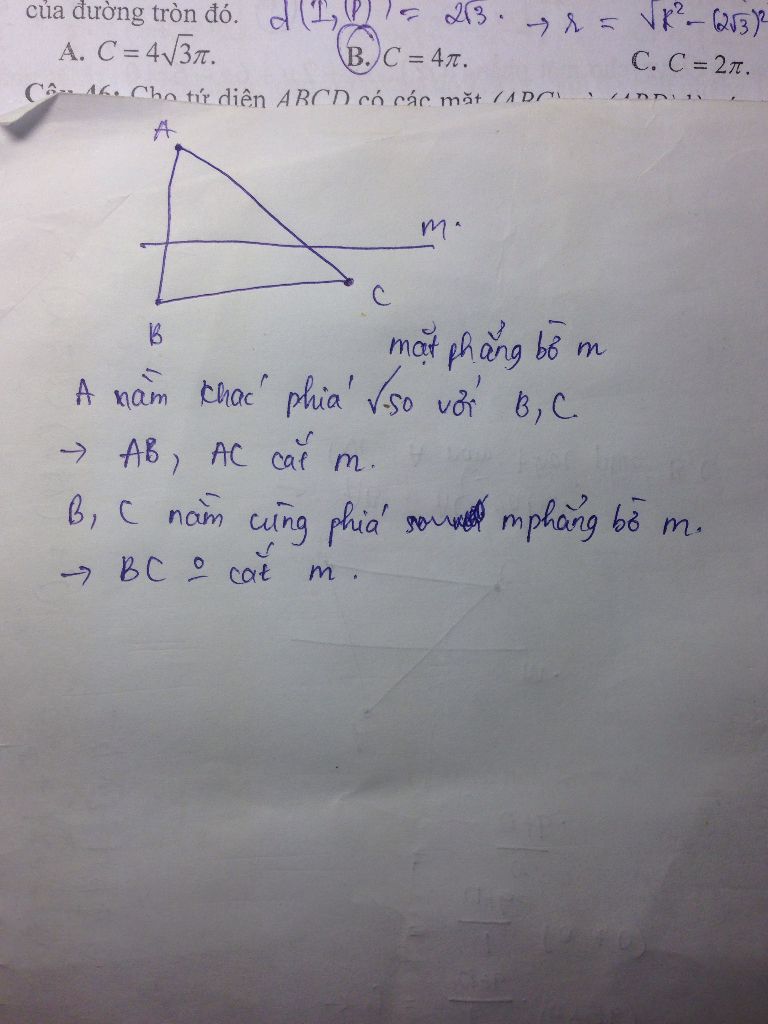 của đường tròn đó. d(I, (P)) = 2√3. → r = √R² - (2√3)²
A. C = 4√3π. B. C = 4π. C. C = 2π.
Câu 46: Cho tứ diện ABCD có các mặt (ABC)
A
m.
C
B
mặt phẳng bờ m
A nằm khác phía √ so với B, C.
→ AB, AC cắt m.
B, C nằm cùng phía mphẳng bờ m.
→ BC o cắt m.